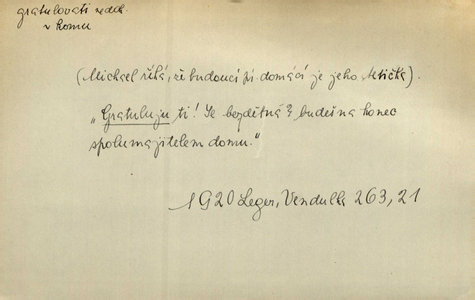 gratulovati nedok.
v komu
(Michael říká, že budoucí pí domácí je jeho tetička).
„Gratuluju ti! Je bezdětná? budeš na konec
spolumajitelem domu."
1920 Leger, Vendulka 263, 21